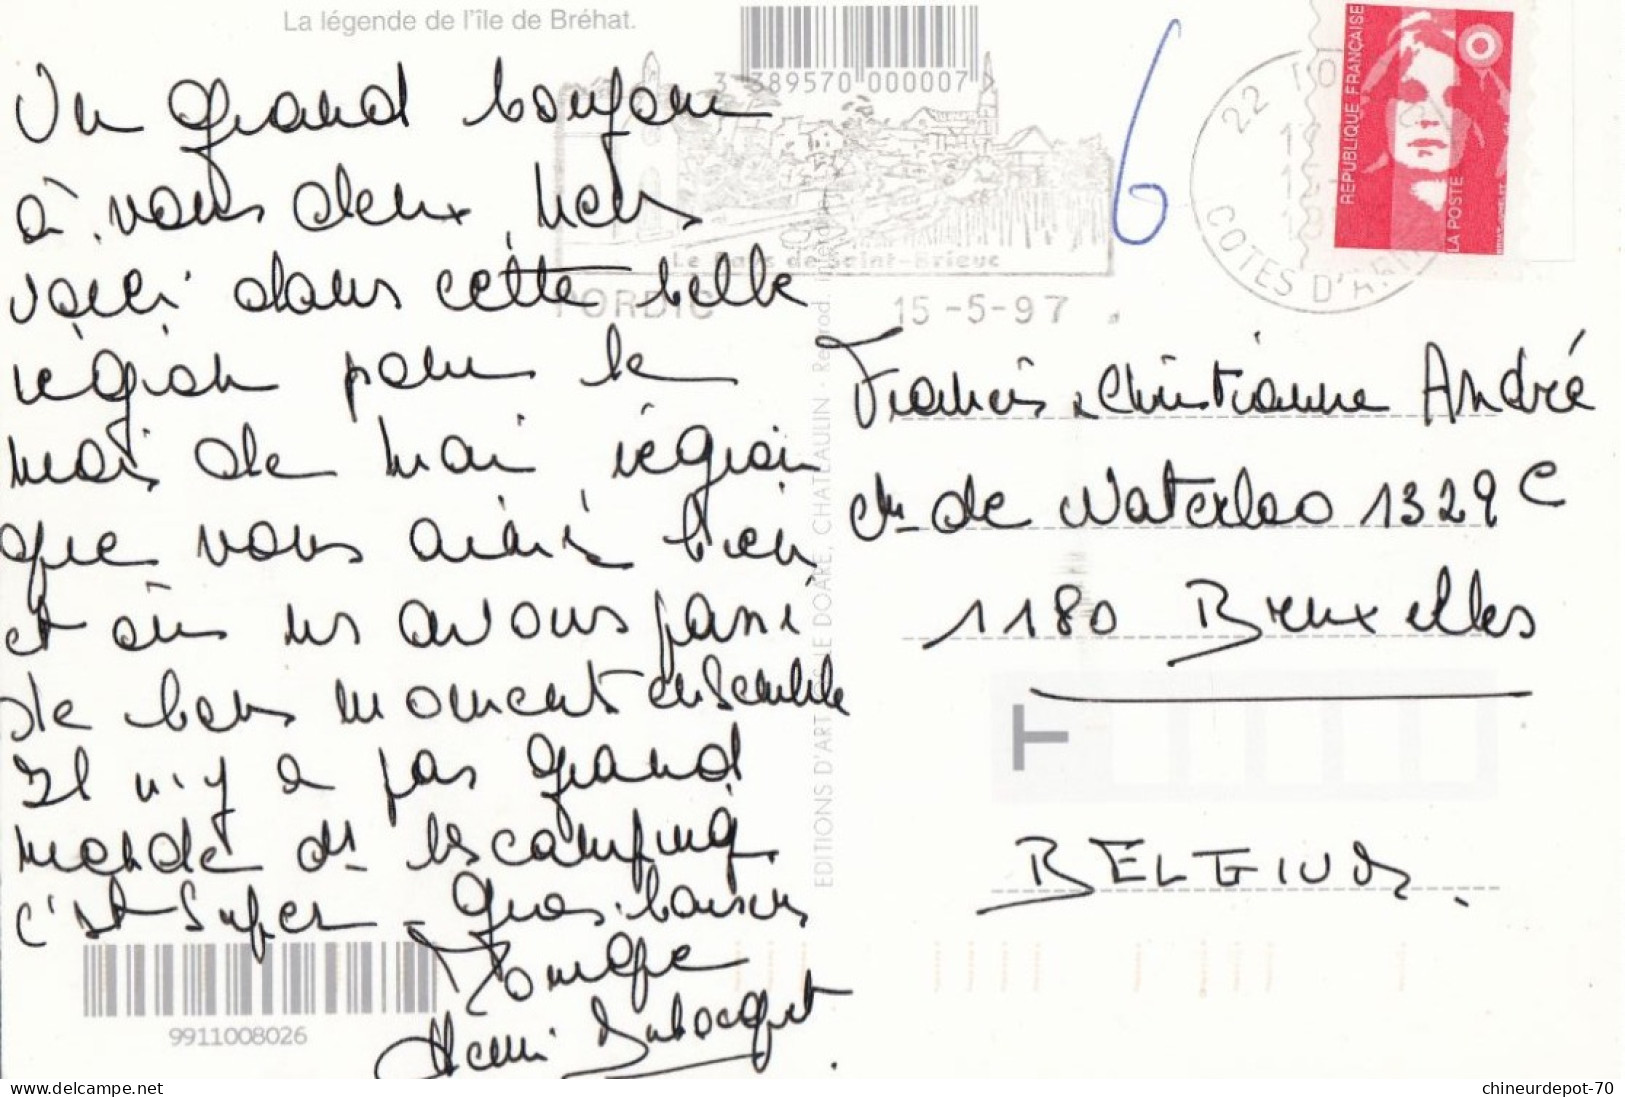 La légende de l'île de Bréhat.
3 389570 000007
Un grand bonjour
à vous deux, nous
voici dans cette belle
région pour le
mois de mai, région
que vous aimé bien
et où ns avons passé
de bons moment ensemble
Il n'y a pas grand
monde ds les camping
c'est super - Gros baisers
Henri
9911008026
6
22
COTES D'AR
RÉPUBLIQUE FRANÇAISE
LA POSTE
Le Pays de Saint-Brieuc
PORDIC 15-5-97
EDITIONS D'ART LE DOARÉ, CHATEAULIN - Reprod. interdite
Francis Christianne André
ch de Waterloo 1329 C
1180 Bruxelles
T
BELGIUM.
Delcampe.net
chineurdepot-70